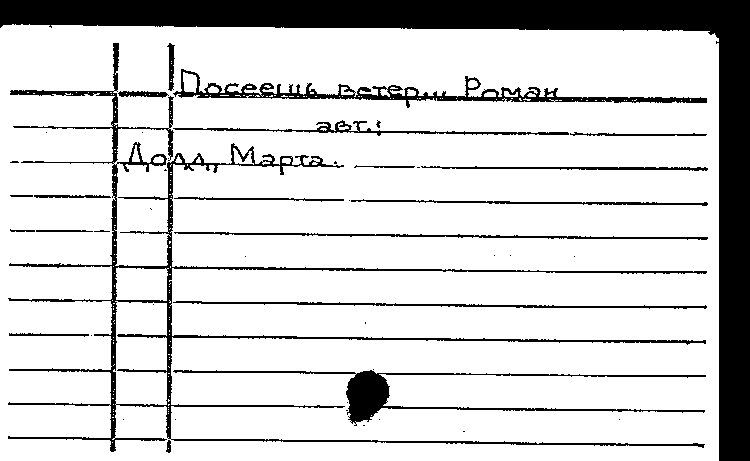 Посеешь ветер... Роман
авт.:
Додд, Марта.